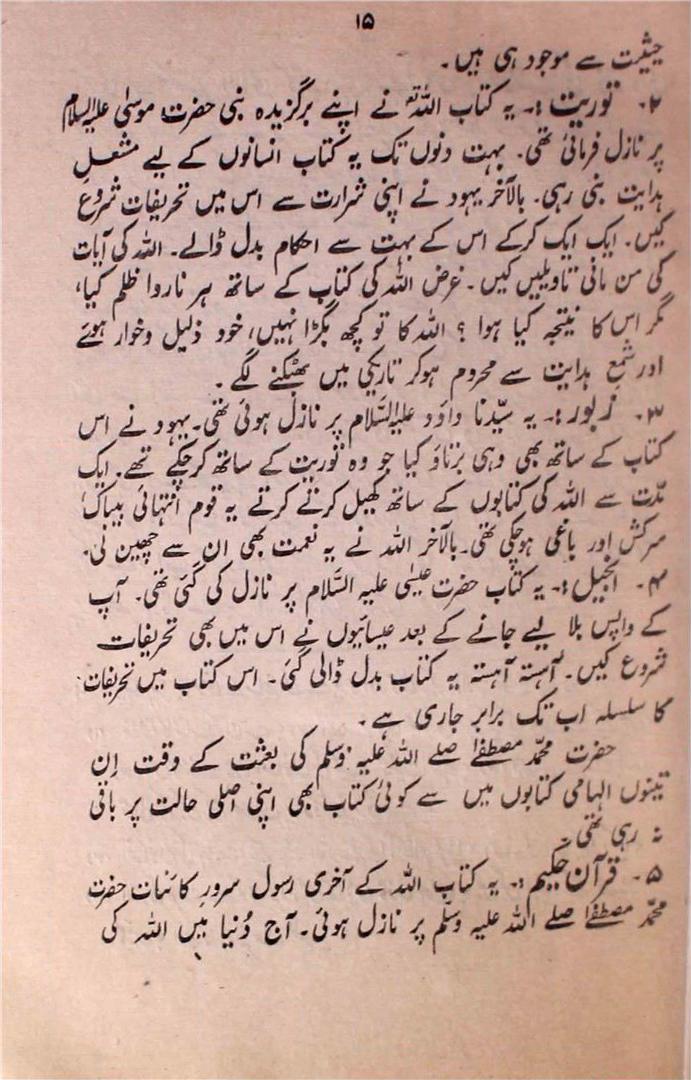 ۱۵
حیثیت سے موجود ہی ہیں۔
۲۔ توریت :۔ یہ کتاب اللہ نے اپنے برگزیدہ نبی حضرت موسیٰ علیہ السلام
پر نازل فرمائی تھی۔ بہت دنوں تک یہ کتاب انسانوں کے لیے مشعلِ
ہدایت بنی رہی۔ بالآخر یہود نے اپنی شرارت سے اس میں تحریفات شروع
کیں۔ ایک ایک کرکے اس کے بہت سے احکام بدل ڈالے۔ اللہ کی آیات
کی من مانی تاویلیں کیں۔ غرض اللہ کی کتاب کے ساتھ ہر ناروا ظلم کیا،
مگر اس کا نتیجہ کیا ہوا ؟ اللہ کا تو کچھ بگڑا نہیں، خود ذلیل وخوار ہوئے
اور شمعِ ہدایت سے محروم ہوکر تاریکی میں بھٹکنے لگے۔
۳۔ زبور :۔ یہ سیّدنا داوٗد علیہ السّلام پر نازل ہوئی تھی۔ یہود نے اس
کتاب کے ساتھ بھی وہی برتاؤ کیا جو وہ توریت کے ساتھ کرچکے تھے۔ ایک
مدّت سے اللہ کی کتابوں کے ساتھ کھیل کرتے کرتے یہ قوم انتہائی بیباک
سرکش اور باغی ہوچکی تھی۔ بالآخر اللہ نے یہ نعمت بھی ان سے چھین لی۔
۴۔ انجیل :۔ یہ کتاب حضرت عیسٰی علیہ السَّلام پر نازل کی گئی تھی۔ آپ
کے واپس بلا لیے جانے کے بعد عیسائیوں نے اس میں بھی تحریفات
شروع کیں۔ آہستہ آہستہ یہ کتاب بدل ڈالی گئی۔ اس کتاب میں تحریفات
کا سلسلہ اب تک برابر جاری ہے۔
حضرت محمّد مصطفےٰ صلے اللہ علیہ وسلم کی بعثت کے وقت اِن
تینوں الہامی کتابوں میں سے کوئی کتاب بھی اپنی اصلی حالت پر باقی
نہ رہی تھی۔
۵۔ قرآن حکیم :۔ یہ کتاب اللہ کے آخری رسول سرورِ کائنات حضرت
محمّد مصطفےٰ صلے اللہ علیہ وسلّم پر نازل ہوئی۔ آج دُنیا میں اللہ کی